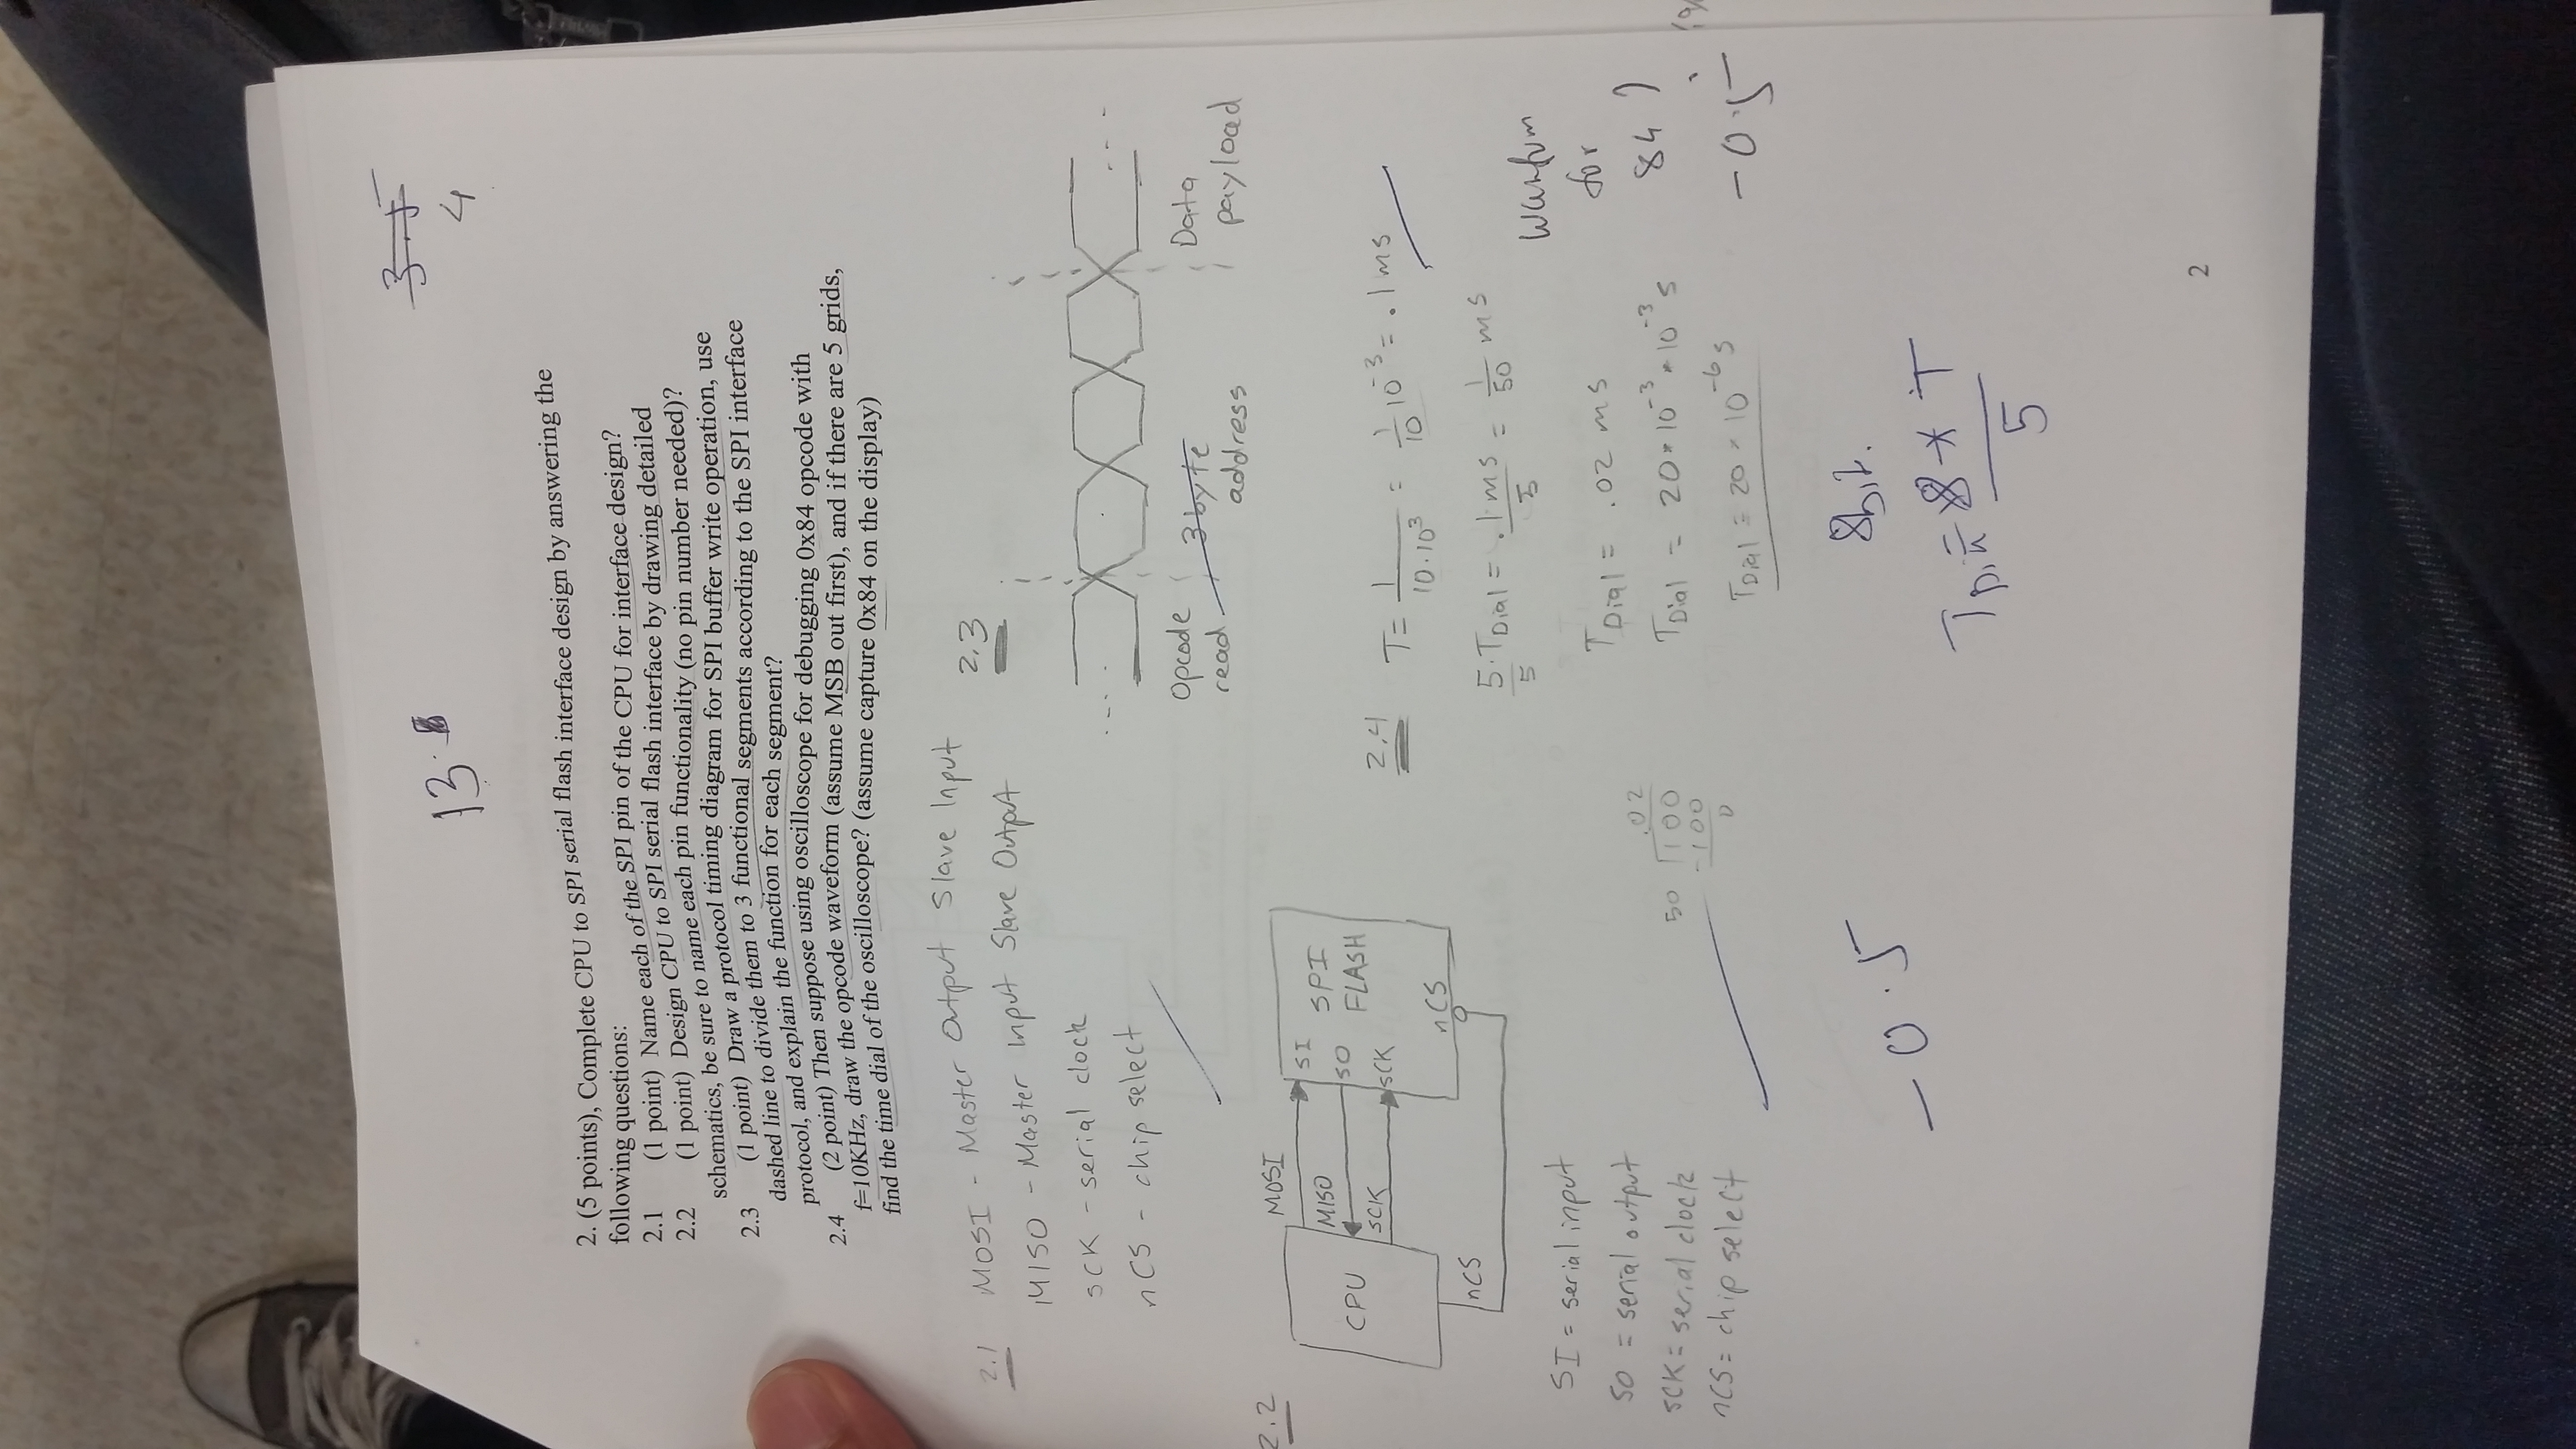 3.5
4
13.
2. (5 points), Complete CPU to SPI serial flash interface design by answering the
following questions:
2.1 (1 point) Name each of the SPI pin of the CPU for interface design?
2.2 (1 point) Design CPU to SPI serial flash interface by drawing detailed
schematics, be sure to name each pin functionality (no pin number needed)?
2.3 (1 point) Draw a protocol timing diagram for SPI buffer write operation, use
dashed line to divide them to 3 functional segments according to the SPI interface
protocol, and explain the function for each segment?
2.4 (2 point) Then suppose using oscilloscope for debugging 0x84 opcode with
f=10KHz, draw the opcode waveform (assume MSB out first), and if there are 5 grids,
find the time dial of the oscilloscope? (assume capture 0x84 on the display)
2.1 MOSI - Master Output Slave Input
MISO - Master Input Slave Output
SCK - serial clock
nCS - chip select
2.3
Opcode
read
3 byte
address
Data
payload
2.2
MOSI
MISO
SCK
nCS
CPU
SI
SO
SCK
nCS
SPI
FLASH
SI = serial input
SO = serial output
SCK = serial clock
nCS = chip select
2.4 T = 1/10·10³ = 1/10 10⁻³ = .1 ms
5·TDial/5 = .1 ms/5 = 1/50 ms
TDial = .02 ms
TDial = 20*10⁻³*10⁻³ s
TDial = 20 * 10⁻⁶ s
.02
50 100
-100
0
for
84
-0.5
-0.5
8bit.
= 8 * T
5
2